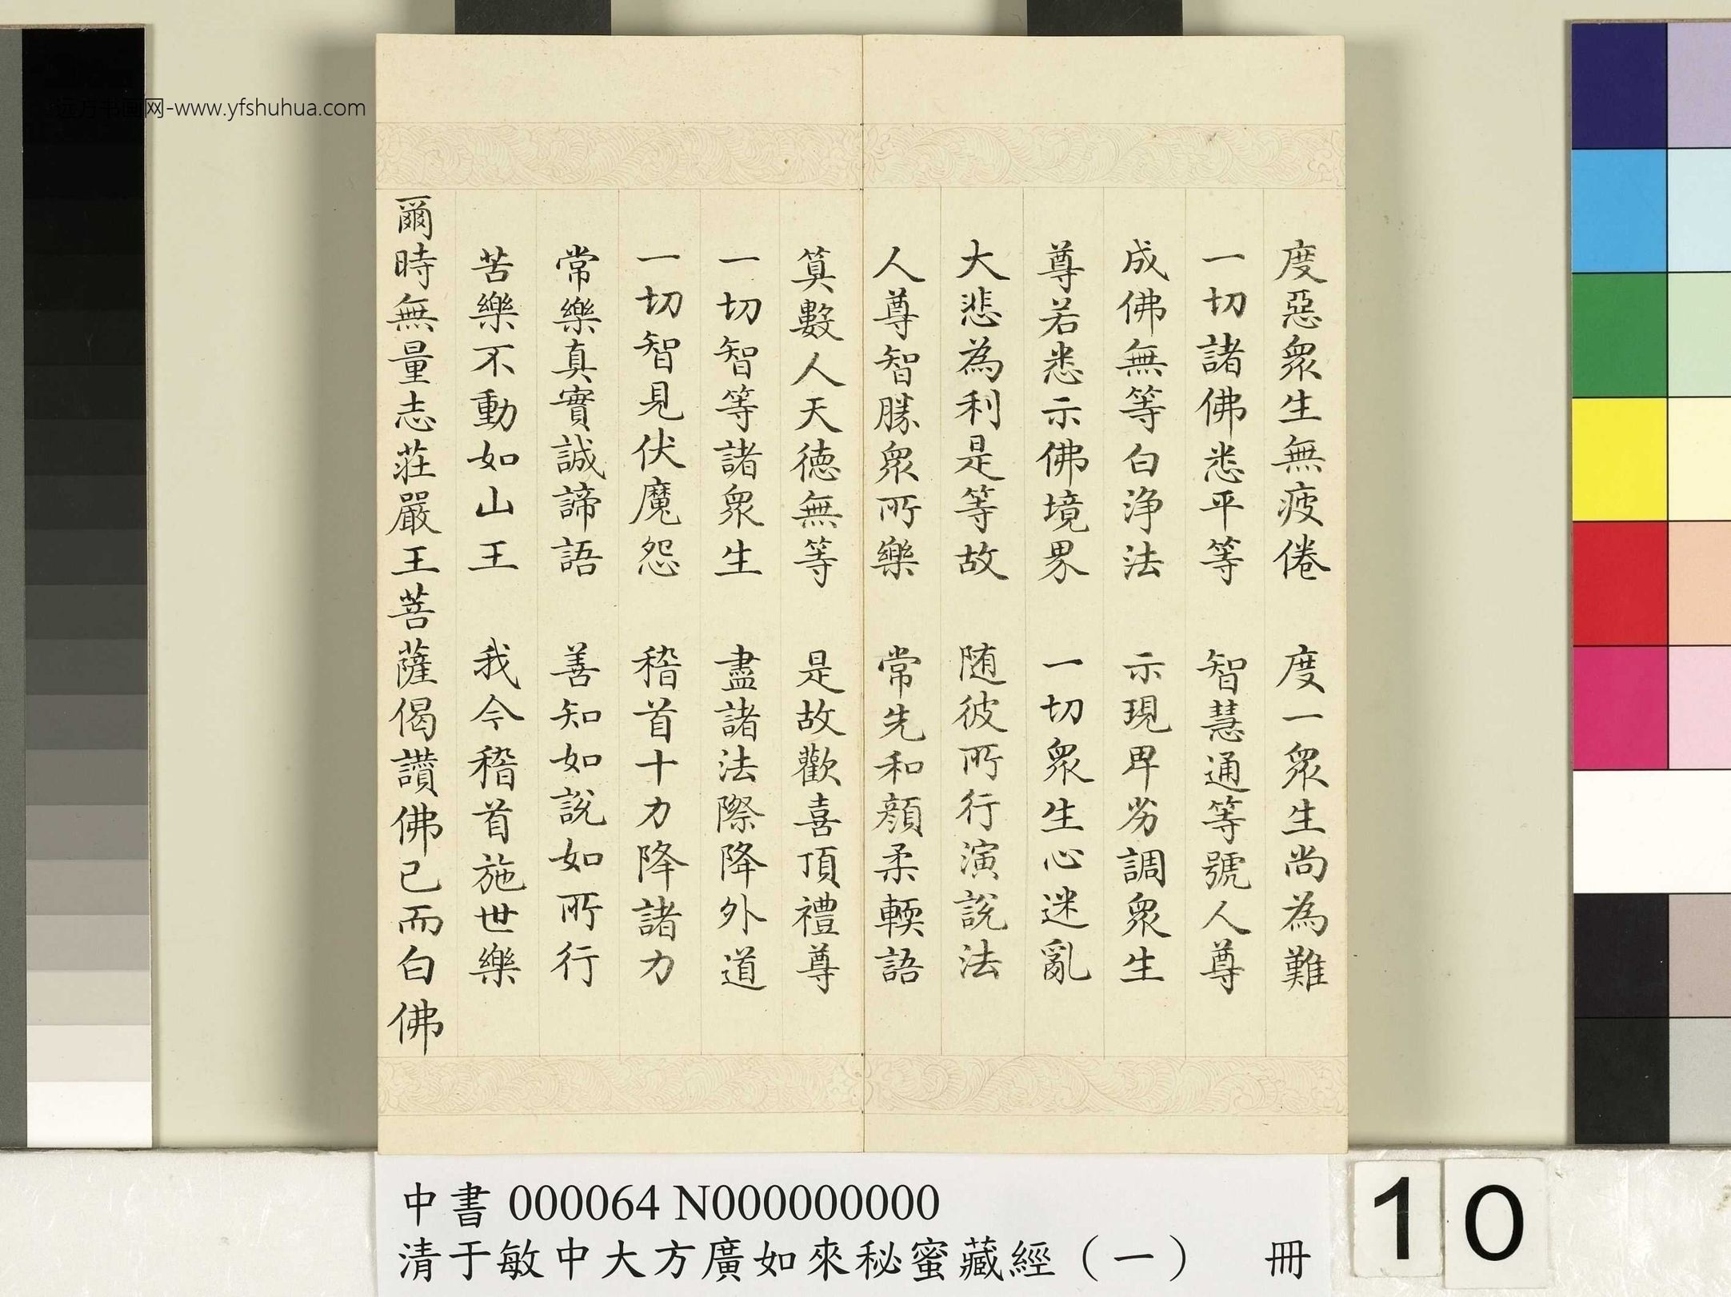 度惡衆生無疲倦　度一衆生尚為難
一切諸佛悉平等　智慧通等號人尊
成佛無等白淨法　示現卑劣調衆生
尊若悉示佛境界　一切衆生心迷亂
大悲為利是等故　随彼所行演說法
人尊智勝衆所樂　常先和顔柔輭語
筭數人天德無等　是故歡喜頂禮尊
一切智等諸衆生　盡諸法際降外道
一切智見伏魔怨　稽首十力降諸力
常樂真實誠諦語　善知如說如所行
苦樂不動如山王　我今稽首施世樂
爾時無量志莊嚴王菩薩偈讚佛已而白佛
中書 000064 N000000000
清于敏中大方廣如來秘蜜藏經（一）　冊
10
远方书画网-www.yfshuhua.com